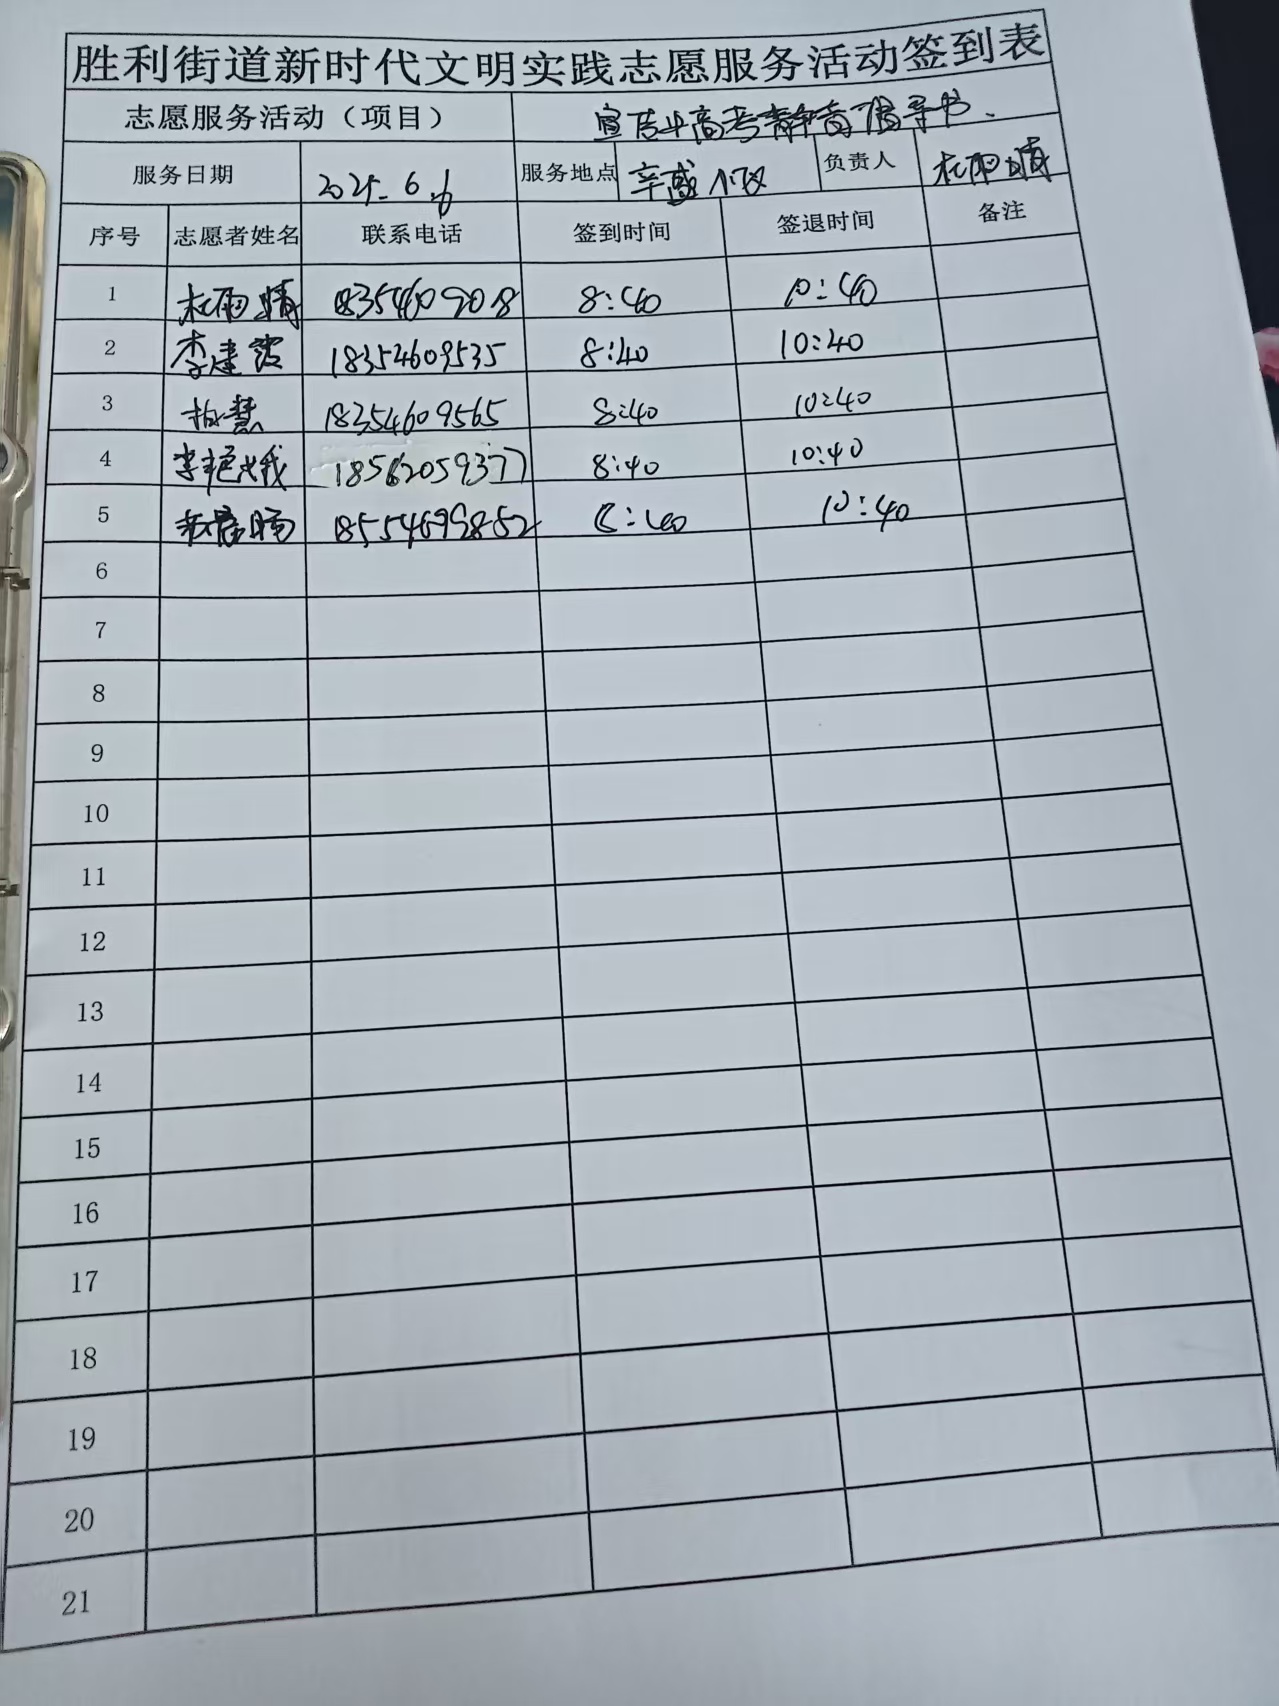 胜利街道新时代文明实践志愿服务活动签到表
志愿服务活动（项目） 宣传中高考静音倡导书.
服务日期 2025.6.6 服务地点 辛盛小区 负责人 杜雨晴
序号 志愿者姓名 联系电话 签到时间 签退时间 备注
1 杜雨晴 18354609208 8:40 10:40
2 李建霞 18354609535 8:40 10:40
3 柏慧 18354609565 8:40 10:40
4 李艳娥 18562059377 8:40 10:40
5 18554699852 8:40 10:40
6
7
8
9
10
11
12
13
14
15
16
17
18
19
20
21